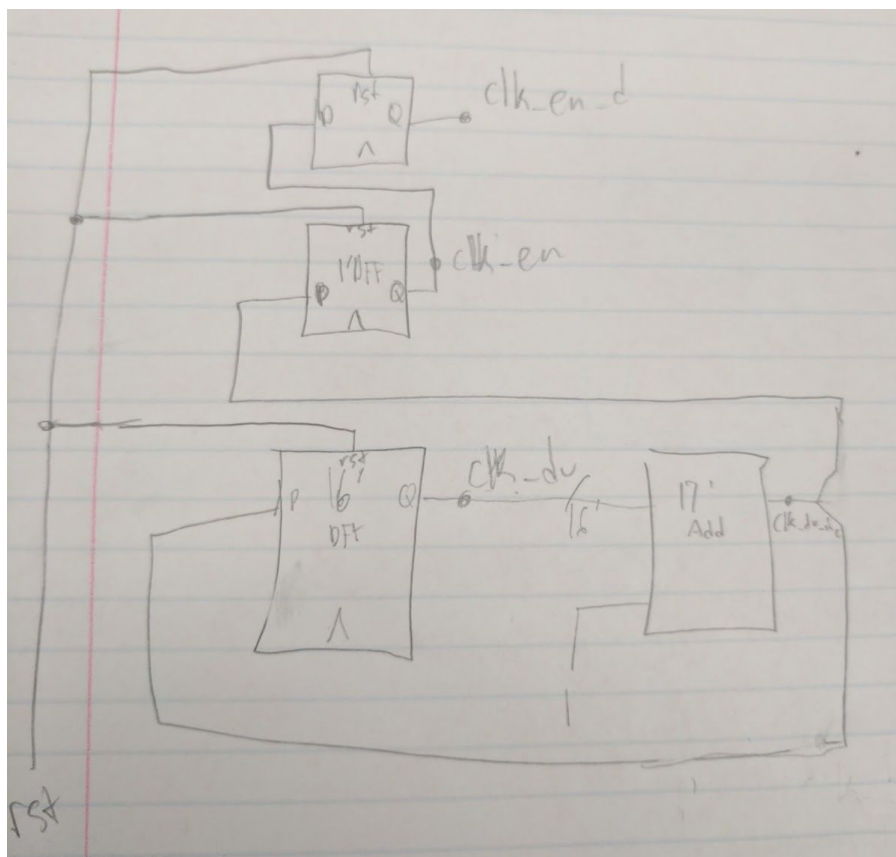 rst
D Q
clk_en_d
rst
1'DFF
D Q
clk_en
rst
16'
D Q
DFF
clk_dv
16'
17'
Add
clk_dv_inc
1
rst